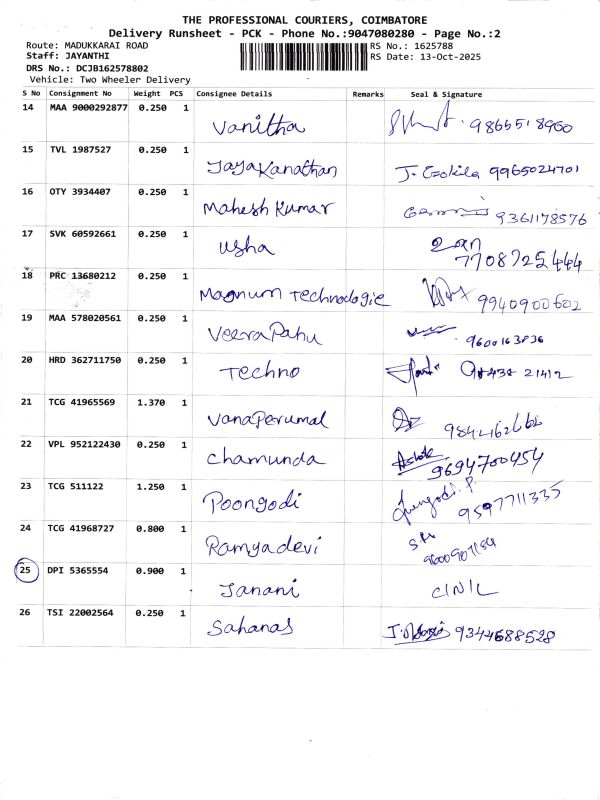 THE PROFESSIONAL COURIERS, COIMBATORE
Delivery Runsheet - PCK - Phone No.:9047080280 - Page No.:2
Route: MADUKKARAI ROAD RS No.: 1625788
Staff: JAYANTHI RS Date: 13-Oct-2025
DRS No.: DCJB162578802
Vehicle: Two Wheeler Delivery
S No Consignment No Weight PCS Consignee Details Remarks Seal & Signature
14 MAA 9000292877 0.250 1 Vanitha 9865518960
15 TVL 1987527 0.250 1 Jayakanathan J. Gokila 9965024701
16 OTY 3934407 0.250 1 Mahesh Kumar 9361178576
17 SVK 60592661 0.250 1 Usha உஷா 7708725444
18 PRC 13680212 0.250 1 Magnum Technologie 9940900602
19 MAA 578020561 0.250 1 VeeraPahu 9600163836
20 HRD 362711750 0.250 1 Techno 21412
21 TCG 41965569 1.370 1 VanaPerumal
22 VPL 952122430 0.250 1 Chamunda Ashok 9694700454
23 TCG 511122 1.250 1 Poongodi Poongodi. P 9597711335
24 TCG 41968727 0.800 1 Ramyadevi
25 DPI 5365554 0.900 1 Janani C/N/L
26 TSI 22002564 0.250 1 Sahanas 9344688528